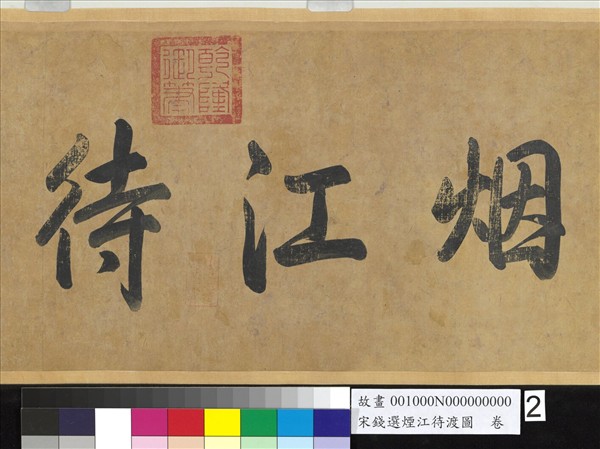 烟江待
乾隆御筆
故畫 001000N000000000
宋錢選煙江待渡圖 卷
2